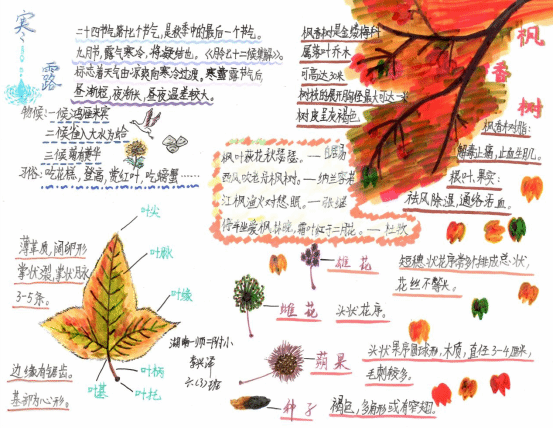 寒
露
二十四节气第十七个节气,是秋季中的最后一个节气。
九月节,露气寒冷,将凝结也。《月令七十二候集解》。
标志着天气由凉爽向寒冷过渡,寒露节气后,
昼渐短,夜渐长,昼夜温差较大。
物候:一候鸿雁来宾
二候雀入大水为蛤
三候菊有黄华
习俗:吃花糕,登高,赏红叶,吃螃蟹……
枫香树
枫香树是金缕梅科
属落叶乔木
可高达30米
树皮呈灰褐色。
枫香树脂:
解毒止痛,止血生肌。
根、叶、果实:
祛风除湿,通络活血。
枫叶荻花秋瑟瑟。——白居易
西风吹老丹枫树。——纳兰容若
江枫渔火对愁眠。——张继
停车坐爱枫林晚,霜叶红于二月花。——杜牧
叶尖
叶脉
叶缘
叶柄
叶基
叶托
薄革质,阔卵形
掌状裂,掌状脉
3-5条。
边缘有锯齿。
基部为心形。
湖南一师一附小
雄花
短穗状花序常多个排成总状,
花丝不等长。
雌花
头状花序。
蒴果
头状果序圆球形,木质,直径3-4厘米,
毛刺较多。
种子
褐色,多角形或有窄翅。